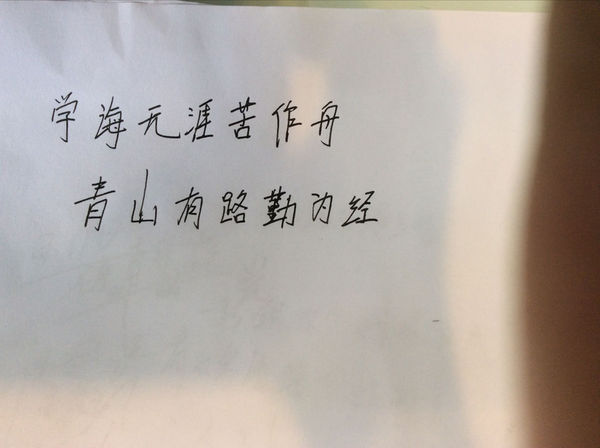 学海无涯苦作舟
青山有路勤为经